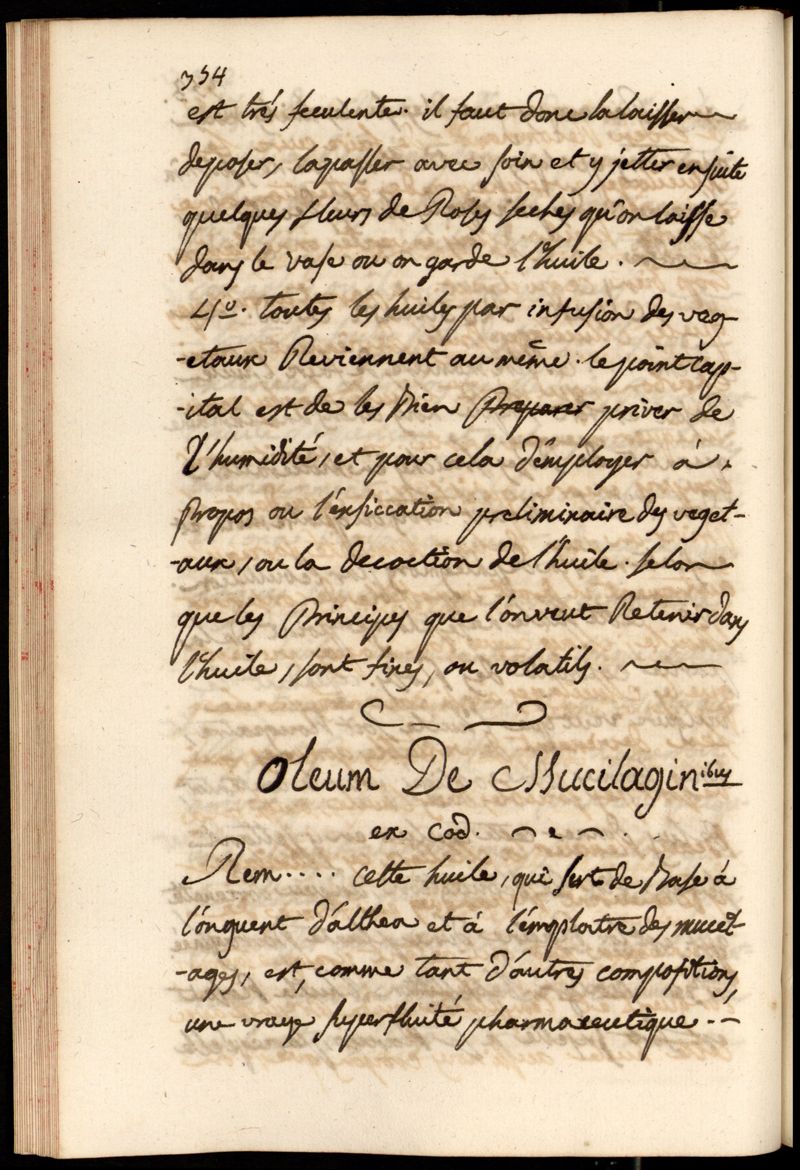 354
est trés feculente. il faut donc la laisser
deposer, la passer avec soin et y jetter ensuite
quelques fleurs de Roses seches qu'on laisse
dans le vase ou on garde l'huile.
4º. toutes les huiles par infusion des veg-
-etaux Reviennent au même. le point cap-
-ital est de les Bien Preparer priver de
l'humidité, et pour cela d'employer à
propos ou l'exsiccation preliminaire des veget-
-aux, ou la decoction de l'huile. selon
que les Principes que l'on veut Retenir dans
l'huile, sont fixes, ou volatils.
Oleum De Mucilaginibus
ex Cod.
Rem.... cette huile, qui sert de Base à
l'onguent d'althea et à l'emplatre des mucil-
-ages, est, comme tant d'autres compositions,
une vraye superfluité pharmaceutique.